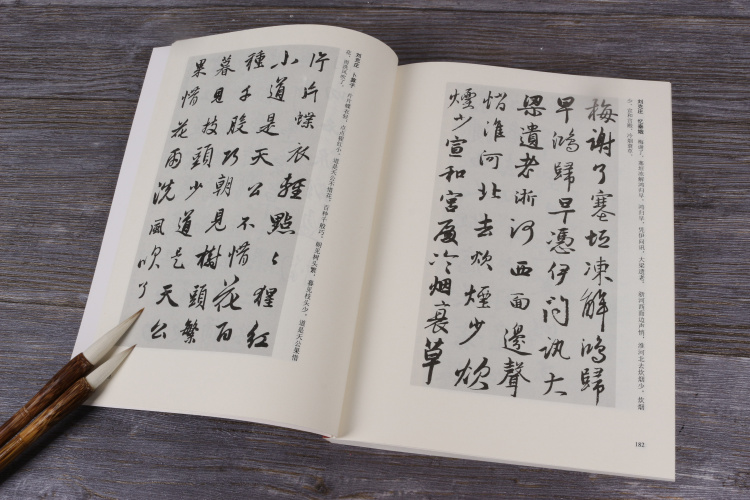 刘克庄 忆秦娥 梅谢了，塞垣冻解鸿归早。鸿归早，凭伊问讯，大梁遗老。 浙河西面边声悄，淮河北去炊烟少。炊烟
少，宣和宫殿，冷烟衰草。
梅謝了塞垣凍解鴻歸
早鴻歸早憑伊問訊大
梁遺老浙河西面邊聲
悄淮河北去炊煙少炊
煙少宣和宮殿冷烟衰草
182
刘克庄 卜算子 片片蝶衣轻，点点猩红小。道是天公不惜花，百种千般巧。 朝见树头繁，暮见枝头少。道是天公果惜
花，雨洗风吹了。
片片蝶衣輕點〻猩紅
小道是天公不惜花百
種千般巧朝見樹頭繁
暮見枝頭少道是天公
果惜花雨洗風吹了